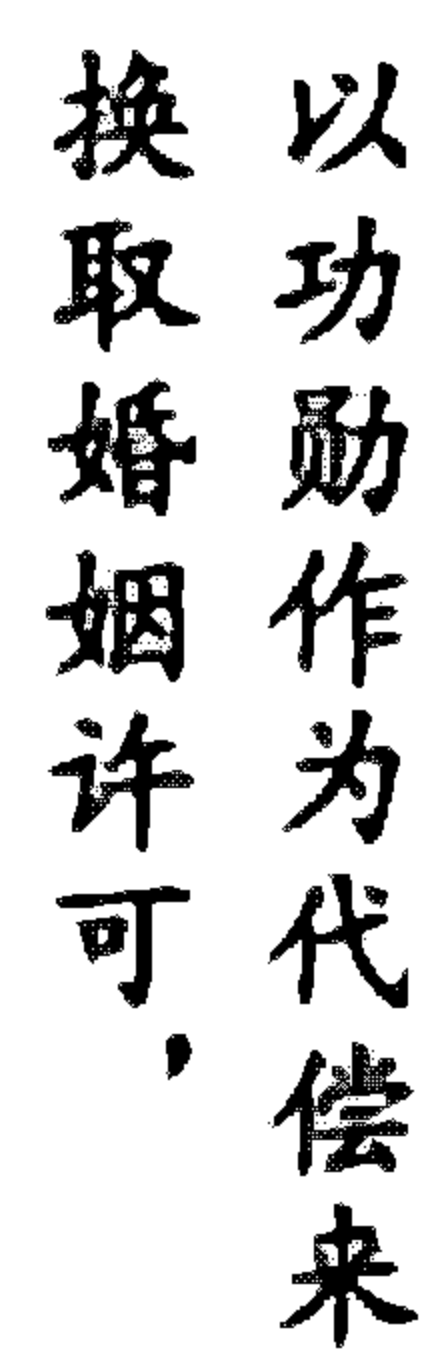 以功勋作为代偿来
换取婚姻许可，